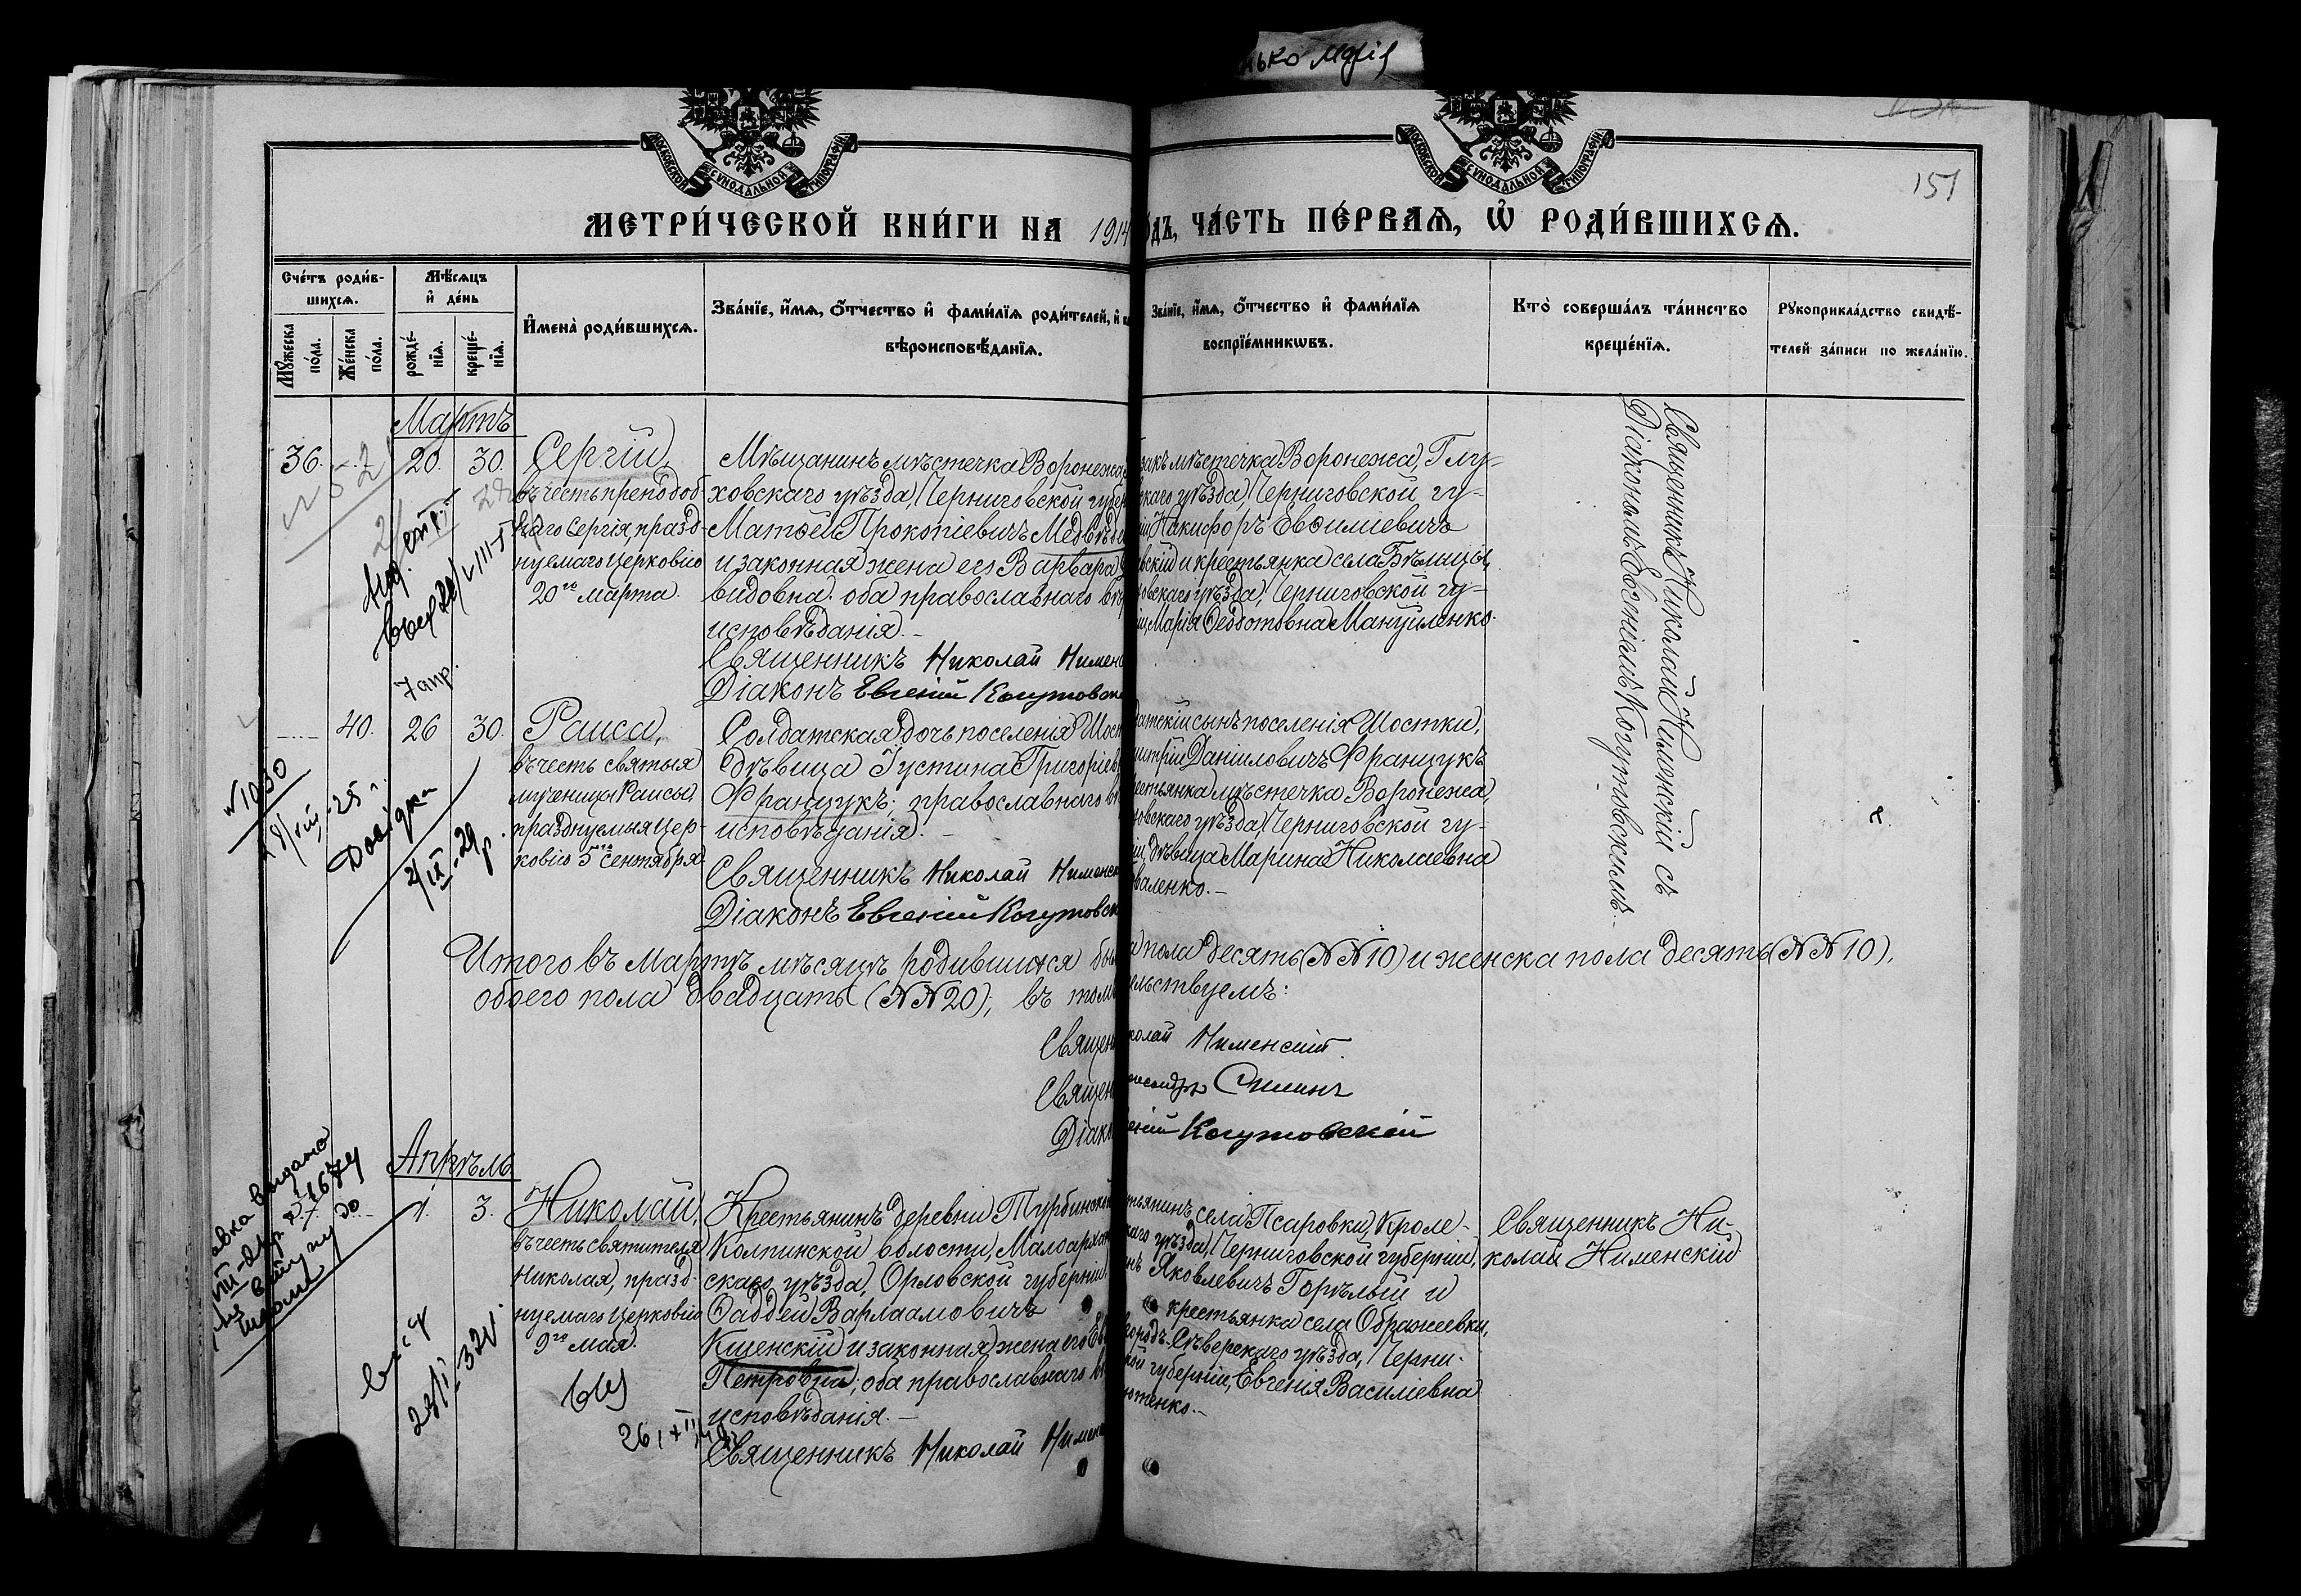 нько марія
МОСКОВСКОЙ СѴНОДАЛЬНОЙ ТИПОГРАФІИ
МОСКОВСКОЙ СѴНОДАЛЬНОЙ ТИПОГРАФІИ
151
МЕТРИ́ЧЕСКОЙ КНИ́ГИ НА 1914
ОДЪ, ЧА́СТЬ ПЕ́РВАѦ, Ѡ РОДИ́ВШИХСѦ.
Сче́тъ роди́в-
шихсѧ.
Мꙋжеска по́ла.
Же́нска по́ла.
Мѣ́сѧцъ
и҆ де́нь
рожде́-
нїѧ.
креще́-
нїѧ.
И҆мена̀ роди́вшихсѧ.
Зва́нїе, и҆́мѧ, ѻ҆́тчество и҆ фами́лїѧ роди́телей, и҆
вѣроисповѣ́данїѧ.
Зва́нїе, и҆́мѧ, ѻ҆́тчество и҆ фами́лїѧ
воспрїе́мникѡвъ.
Кто̀ соверша́лъ та́инство
креще́нїѧ.
Рꙋкоприкла́дство свидѣ́-
телей за́писи по жела́нїю.
Мартъ
36.
20.
30.
Сергій,
въ честь преподоб-
наго Сергія, празд-
нуемаго Церковію
20го Марта.
Мѣщанинъ мѣстечка Воронежа,
ховскаго уѣзда, Черниговской губер
Матѳей Прокопіевичъ Медвѣде
и законная жена его Варвара
видовна; оба православнаго вѣр
исповѣданія.–
Священникъ Николай Нименс
Діаконъ Евгеній Когутовск
закъ мѣстечка Воронежа, Глу-
скаго уѣзда, Черниговской гу-
ніи Никифоръ Евѳиміевичъ
вскій и крестьянка села Бѣлицы,
ховскаго уѣзда, Черниговской гу-
іи, Марія Ѳеодотовна Мануиленко.
Священникъ Николай Нименскій съ
Діакономъ Евгеніемъ Когутовскимъ.
7 апр.
40.
26
30.
Раиса,
въ честь святыя
мученицы Раисы,
празднуемыя Цер-
ковію 5го Сентября.
Солдатская дочь поселенія Шост
дѣвица Іустина Григоріев
Францукъ; православнаго вѣ
исповѣданія.–
Священникъ Николай Нименск
Діаконъ Евгеній Когутовск
датскій сынъ поселенія Шостки,
митрій Даніиловичъ Францукъ
рестьянка мѣстечка Воронежа,
ховскаго уѣзда, Черниговской гу-
іи, дѣвица Марина Николаевна
валенко.–
№1030
Довідка
2/IX-29р.
Итого въ Мартѣ мѣсяцѣ родившихся бы
а пола десять (№№10) и женска пола десять (№№10),
обоего пола двадцать (№№20); въ томъ
ельствуемъ:
Священ
колай Нименскій.
Священ
лександръ Сминъ
Діако
еній Когутовскій
Апрѣль
1.
3.
Николай,
въ честь святителя
Николая, празд-
нуемаго Церковію
9го мая.
Крестьянинъ деревни Турбинской
Колпинской волости, Малоархан
скаго уѣзда, Орловской губерніи,
Ѳаддей Варлаамовичъ
Кшенскій и законная жена его Ев
Петровна; оба православнаго вѣ
исповѣданія.–
Священникъ Николай Нименс
тьянинъ села Псаровки, Кроле-
каго уѣзда, Черниговской губерніи,
нъ Яковлевичъ Горѣлый и
крестьянка села Ображеевки,
городъ-Сѣверскаго уѣзда, Черни-
кой губерніи, Евгенія Василіевна
ютенко.–
Священникъ Ни-
колай Нименскій